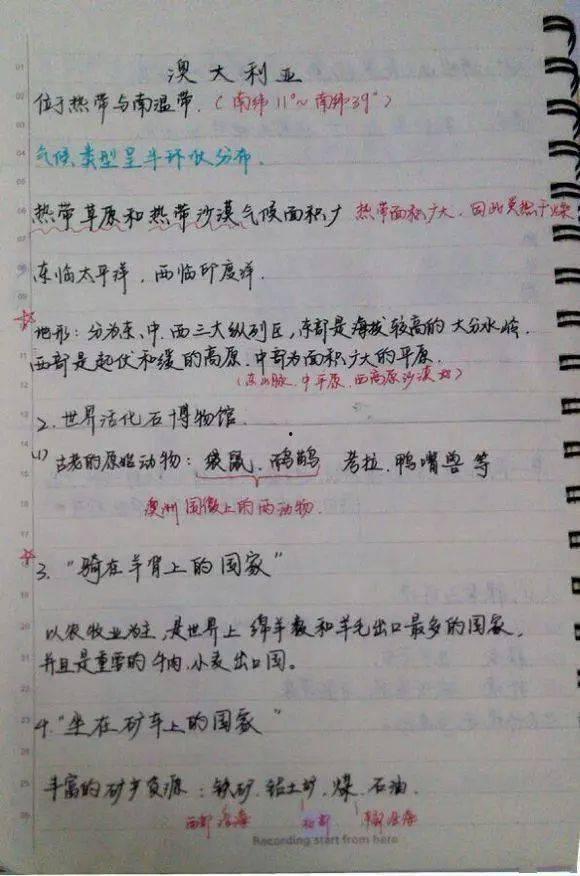 澳大利亚
位于热带与南温带.(南纬11°~南纬39°)
气候类型呈半环状分布.
热带草原和热带沙漠气候面积广 热带面积广大,因此炎热干燥
东临太平洋,西临印度洋.
☆地形:分为东、中、西三大纵列区,东部是海拔较高的大分水岭.
西部是起伏和缓的高原.中部为面积广大的平原.
(东山脉.中平原.西高原沙漠)
2.世界活化石博物馆.
(1) 古老的原始动物:袋鼠、鸸鹋 考拉、鸭嘴兽等
澳洲国徽上的两动物.
☆3."骑在羊背上的国家"
以农牧业为主,是世界上绵羊数和羊毛出口最多的国家,
并且是重要的牛肉、小麦出口国。
4."坐在矿车上的国家"
丰富的矿产资源:铁矿.铝土矿、煤、石油.
西部沿海 北部 东部沿海
Recording start from here